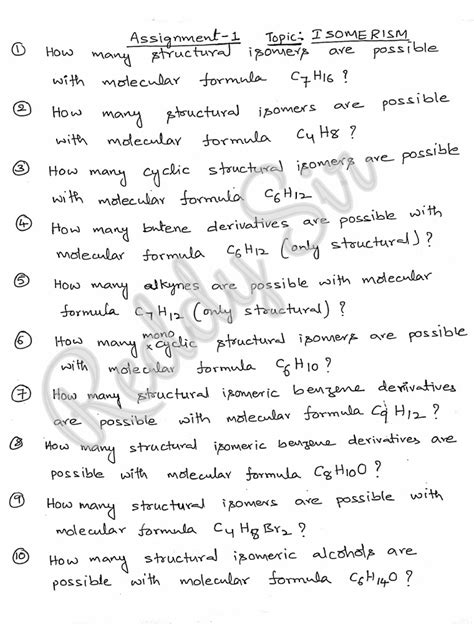 Assignment-1 Topic: ISOMERISM
① How many structural isomers are possible
with molecular formula C₇H₁₆ ?
② How many structural isomers are possible
with molecular formula C₄H₈ ?
③ How many cyclic structural isomers are possible
with molecular formula C₆H₁₂
④ How many butene derivatives are possible with
molecular formula C₆H₁₂ (only structural) ?
⑤ How many alkynes are possible with molecular
formula C₇H₁₂ (only structural) ?
⑥ How many mono cyclic structural isomers are possible
with molecular formula C₆H₁₀ ?
⑦ How many structural isomeric benzene derivatives
are possible with molecular formula C₉H₁₂ ?
⑧ How many structural isomeric benzene derivatives are
possible with molecular formula C₈H₁₀O ?
⑨ How many structural isomers are possible with
molecular formula C₄H₈Br₂ ?
⑩ How many structural isomeric alcohols are
possible with molecular formula C₆H₁₄O ?
Reddy Sir